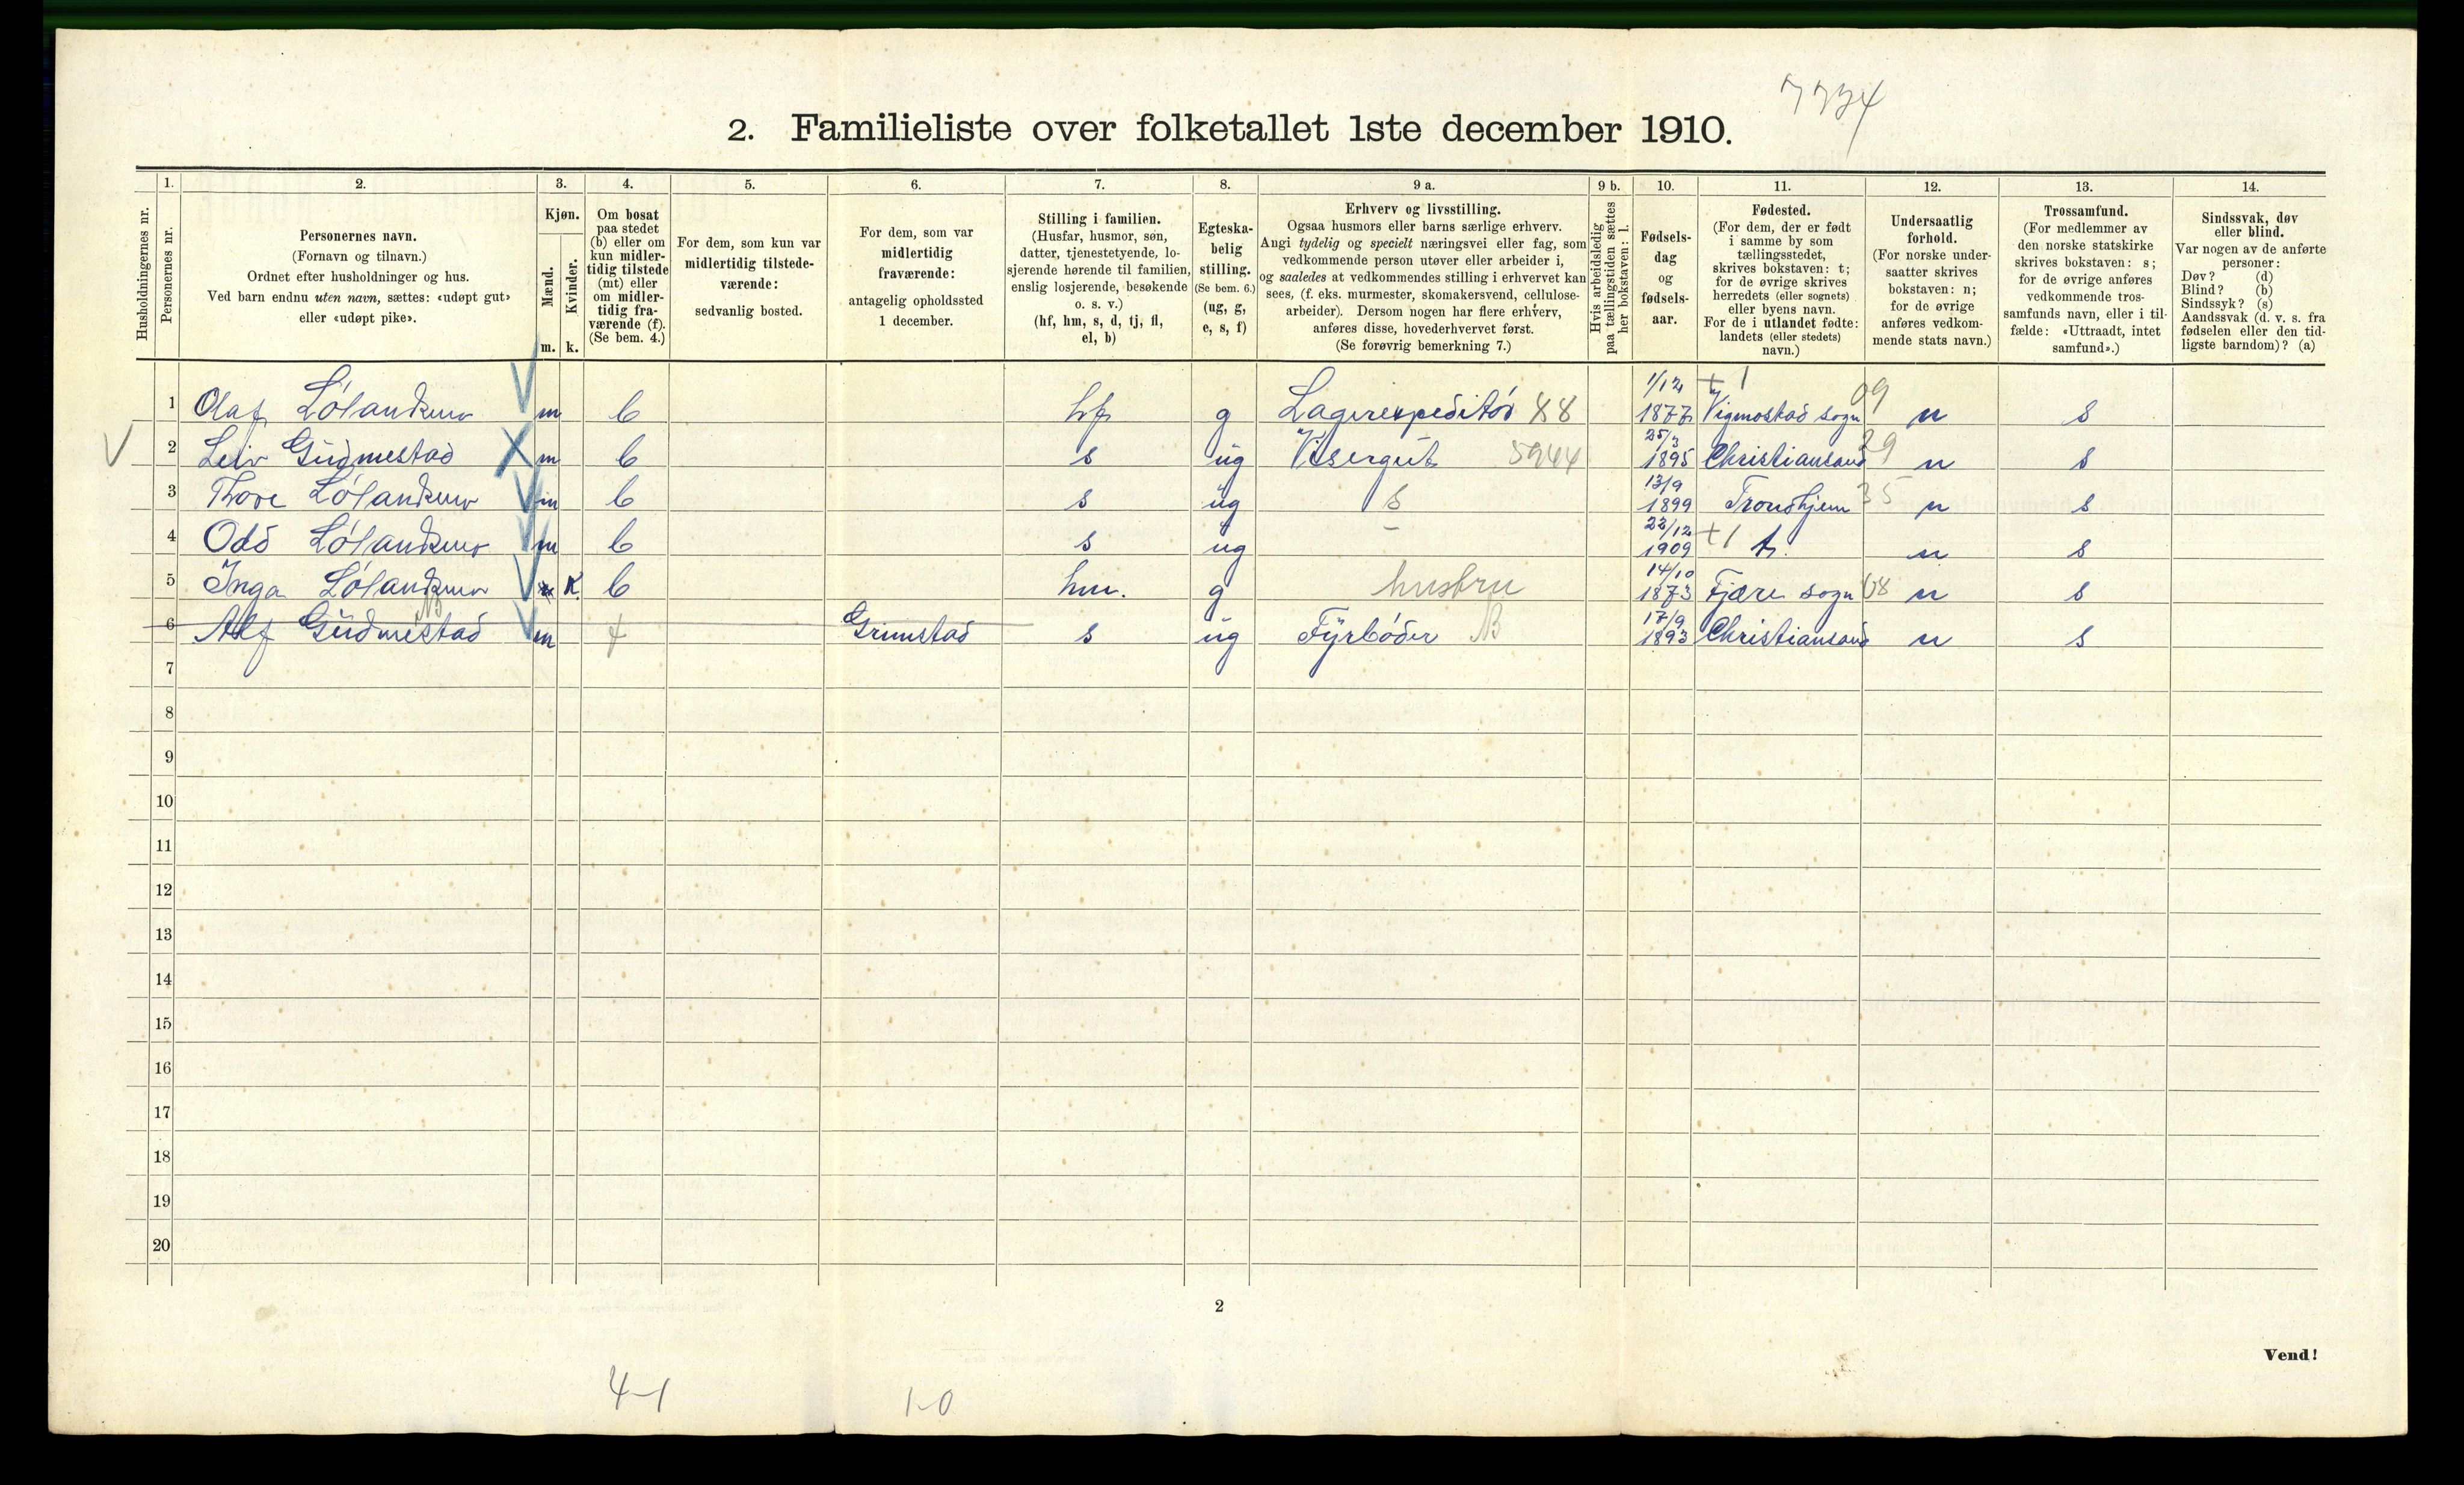 7734
2. Familieliste over folketallet 1ste december 1910.
Husholdningernes nr.
1.
Personernes nr.
2.
Personernes navn.
(Fornavn og tilnavn.)
Ordnet efter husholdninger og hus.
Ved barn endnu uten navn, sættes: «udøpt gut»
eller «udøpt pike».
3.
Kjøn.
Mænd.
Kvinder.
m. k.
4.
Om bosat
paa stedet
(b) eller om
kun midler-
tidig tilstede
(mt) eller
om midler-
tidig fra-
værende (f).
(Se bem. 4.)
5.
For dem, som kun var
midlertidig tilstede-
værende:
sedvanlig bosted.
6.
For dem, som var
midlertidig
fraværende:
antagelig opholdssted
1 december.
7.
Stilling i familien.
(Husfar, husmor, søn,
datter, tjenestetyende, lo-
sjerende hørende til familien,
enslig losjerende, besøkende
o. s. v.)
(hf, hm, s, d, tj, fl,
el, b)
8.
Egteska-
belig
stilling.
(Se bem. 6.)
(ug, g,
e, s, f)
9 a.
Erhverv og livsstilling.
Ogsaa husmors eller barns særlige erhverv.
Angi tydelig og specielt næringsvei eller fag, som
vedkommende person utøver eller arbeider i,
og saaledes at vedkommendes stilling i erhvervet kan
sees, (f. eks. murmester, skomakersvend, cellulose-
arbeider). Dersom nogen har flere erhverv,
anføres disse, hovederhvervet først.
(Se forøvrig bemerkning 7.)
9 b.
Hvis arbeidsledig
paa tællingstiden sættes
her bokstaven: l.
10.
Fødsels-
dag
og
fødsels-
aar.
11.
Fødested.
(For dem, der er født
i samme by som
tællingsstedet,
skrives bokstaven: t;
for de øvrige skrives
herredets (eller sognets)
eller byens navn.
For de i utlandet fødte:
landets (eller stedets)
navn.)
12.
Undersaatlig
forhold.
(For norske under-
saatter skrives
bokstaven: n;
for de øvrige
anføres vedkom-
mende stats navn.)
13.
Trossamfund.
(For medlemmer av
den norske statskirke
skrives bokstaven: s;
for de øvrige anføres
vedkommende tros-
samfunds navn, eller i til-
fælde: «Uttraadt, intet
samfund».)
14.
Sindssvak, døv
eller blind.
Var nogen av de anførte
personer:
Døv? (d)
Blind? (b)
Sindssyk? (s)
Aandssvak (d. v. s. fra
fødselen eller den tid-
ligste barndom)? (a)
1 Olaf m b hf g Lagerexpeditör 88 1/12 1877 Vigmostad sogn 09 n s
2 Leiv Gudmestad m b s ug Visergut 5944 25/3 1895 Christiansand 39 n s
3 Thore m b s ug s 13/9 1899 Trondhjem 35 n s
4 Odd m b s ug - 23/12 1909 +1 t. n s
5 Inga K b hm. g husbru 14/10 1873 Fjære sogn 08 n s
6 Alf Gudmestad m f Grimstad s ug Fyrböder B 17/9 1893 Christiansand n s
7
8
9
10
11
12
13
14
15
16
17
18
19
20
2
Vend!
4-1
1-0